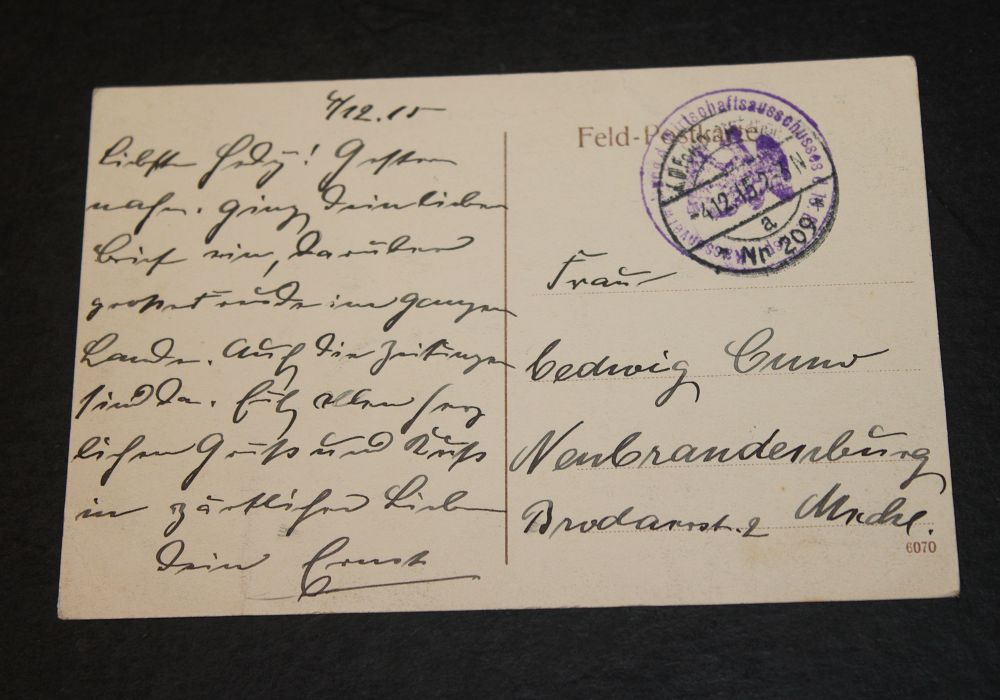 4/12.15
Liebste Hedy! Gestern
nahm. ging Dein lieber
Brief ein, darüber
große Freude im ganzen
Lande. Auch die Zeitungen
sind da. Euch allen herz
lichen Gruß und Kuß
in zärtlicher Liebe
Dein Ernst
Feld-Postkarte
Wirtschaftsausschusses
K.D.Feldpost
-4.12.15.
a
* Nr. 209 *
Frau
Hedwig Cuno
Neubrandenburg
Brodaerstr. 2 Meckl.
6070